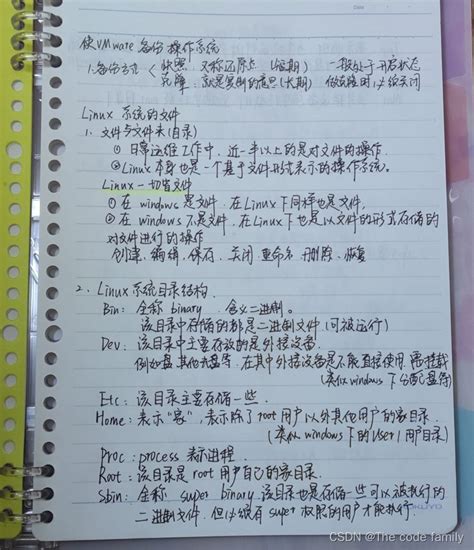 使VMware备份操作系统
1.备份方式 快照:又称还原点(短期) 一般处于开启状态
克隆:就是复制的意思(长期) 做克隆时必须关闭
Linux 系统的文件
1. 文件与文件夹(目录)
① 日常运维工作中,近一半以上的是对文件的操作
② Linux本身也是一个基于文件形式表示的操作系统。
Linux一切皆文件
①在windows是文件,在Linux下同样也是文件,
②在windows不是文件,在Linux下也是以文件的形式存储的
对文件进行的操作
创建、编辑、保存、关闭、重命名、删除、恢复
2. Linux系统目录结构
Bin: 全称 binary 含义二进制。
该目录中存储的都是二进制文件(可被运行)
Dev: 该目录中主要存放的是外接设备
例如盘其他光盘等,在其中外接设备是不能直接使用,需挂载
(类似windows下分配盘符)
Etc: 该目录主要存储一些.
Home: 表示"家",表示除了root用户以外其他用户的家目录.
(类似windows下的User/用户目录)
Proc: process 表示进程.
Root: 该目录是root用户自己的家目录.
Sbin: 全称 super binary 该目录也是存储一些可以被执行的
二进制文件,但必须有super权限的用户才能执行.
KOKUYO
CSDN @The code family